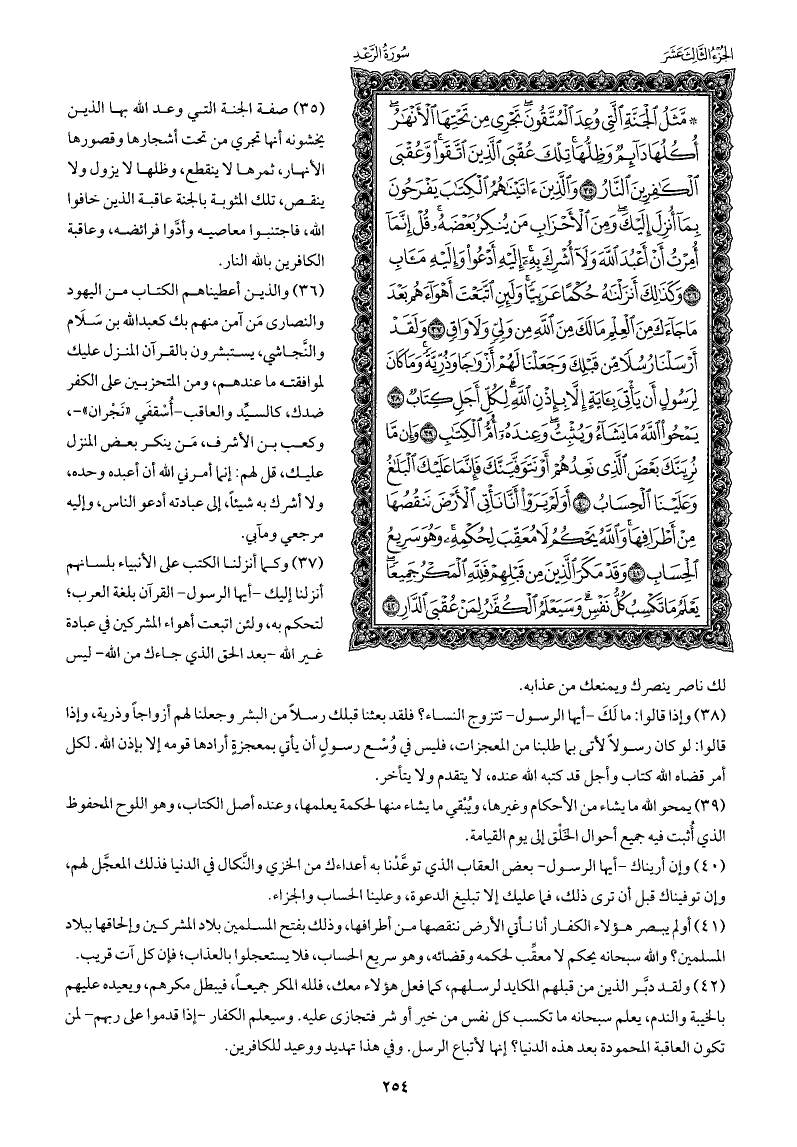 الجزء الثالث عشر
سورة الرعد
۞ مَّثَلُ ٱلْجَنَّةِ ٱلَّتِي وُعِدَ ٱلْمُتَّقُونَۖ تَجْرِي مِن تَحْتِهَا ٱلْأَنْهَٰرُۖ
أُكُلُهَا دَآئِمٌ وَظِلُّهَاۚ تِلْكَ عُقْبَى ٱلَّذِينَ ٱتَّقَواْۖ وَّعُقْبَى
ٱلْكَٰفِرِينَ ٱلنَّارُ ٣٥ وَٱلَّذِينَ ءَاتَيْنَٰهُمُ ٱلْكِتَٰبَ يَفْرَحُونَ
بِمَآ أُنزِلَ إِلَيْكَۖ وَمِنَ ٱلْأَحْزَابِ مَن يُنكِرُ بَعْضَهُۥۚ قُلْ إِنَّمَآ
أُمِرْتُ أَنْ أَعْبُدَ ٱللَّهَ وَلَآ أُشْرِكَ بِهِۦٓۚ إِلَيْهِ أَدْعُواْ وَإِلَيْهِ مَـَٔابِ
٣٦ وَكَذَٰلِكَ أَنزَلْنَٰهُ حُكْمًا عَرَبِيًّاۚ وَلَئِنِ ٱتَّبَعْتَ أَهْوَآءَهُم بَعْدَ
مَا جَآءَكَ مِنَ ٱلْعِلْمِ مَا لَكَ مِنَ ٱللَّهِ مِن وَلِيٍّ وَلَا وَاقٍ ٣٧ وَلَقَدْ
أَرْسَلْنَا رُسُلًا مِّن قَبْلِكَ وَجَعَلْنَا لَهُمْ أَزْوَٰجًا وَذُرِّيَّةًۚ وَمَا كَانَ
لِرَسُولٍ أَن يَأْتِيَ بِـَٔايَةٍ إِلَّا بِإِذْنِ ٱللَّهِۗ لِكُلِّ أَجَلٍ كِتَابٌ ٣٨
يَمْحُواْ ٱللَّهُ مَا يَشَآءُ وَيُثْبِتُۖ وَعِندَهُۥٓ أُمُّ ٱلْكِتَٰبِ ٣٩ وَإِن مَّا
نُرِيَنَّكَ بَعْضَ ٱلَّذِي نَعِدُهُمْ أَوْ نَتَوَفَّيَنَّكَ فَإِنَّمَا عَلَيْكَ ٱلْبَلَٰغُ
وَعَلَيْنَا ٱلْحِسَابُ ٤٠ أَوَلَمْ يَرَوْاْ أَنَّا نَأْتِي ٱلْأَرْضَ نَنقُصُهَا
مِنْ أَطْرَافِهَاۚ وَٱللَّهُ يَحْكُمُ لَا مُعَقِّبَ لِحُكْمِهِۦۚ وَهُوَ سَرِيعُ
ٱلْحِسَابِ ٤١ وَقَدْ مَكَرَ ٱلَّذِينَ مِن قَبْلِهِمْ فَلِلَّهِ ٱلْمَكْرُ جَمِيعًاۖ
يَعْلَمُ مَا تَكْسِبُ كُلُّ نَفْسٍۗ وَسَيَعْلَمُ ٱلْكُفَّٰرُ لِمَنْ عُقْبَى ٱلدَّارِ ٤٢
(٣٥) صفة الجنة التي وعد الله بها الذين
يخشونه أنها تجري من تحت أشجارها وقصورها
الأنهار، ثمرها لا ينقطع، وظلها لا يزول ولا
ينقص، تلك المثوبة بالجنة عاقبة الذين خافوا
الله، فاجتنبوا معاصيه وأدَّوا فرائضه، وعاقبة
الكافرين بالله النار.
(٣٦) والذين أعطيناهم الكتاب من اليهود
والنصارى مَن آمن منهم بك كعبدالله بن سَلَام
والنَّجاشي، يستبشرون بالقرآن المنزل عليك
لموافقته ما عندهم، ومن المتحزبين على الكفر
ضدك، كالسيِّد والعاقب-أُسْقفَي «نَجْران»-،
وكعب بن الأشرف، مَن ينكر بعض المنزل
عليك، قل لهم: إنما أمرني الله أن أعبده وحده،
ولا أشرك به شيئاً، إلى عبادته أدعو الناس، وإليه
مرجعي ومآبي.
(٣٧) وكما أنزلنا الكتب على الأنبياء بلسانهم
أنزلنا إليك -أيها الرسول- القرآن بلغة العرب؛
لتحكم به، ولئن اتبعت أهواء المشركين في عبادة
غير الله -بعد الحق الذي جاءك من الله- ليس
لك ناصر ينصرك ويمنعك من عذابه.
(٣٨) وإذا قالوا: ما لَكَ -أيها الرسول- تتزوج النساء؟ فلقد بعثنا قبلك رسلاً من البشر وجعلنا لهم أزواجاً وذرية، وإذا
قالوا: لو كان رسولاً لأتى بما طلبنا من المعجزات، فليس في وُسْع رسولٍ أن يأتي بمعجزةٍ أرادها قومه إلا بإذن الله. لكل
أمر قضاه الله كتاب وأجل قد كتبه الله عنده، لا يتقدم ولا يتأخر.
(٣٩) يمحو الله ما يشاء من الأحكام وغيرها، ويُبْقي ما يشاء منها لحكمة يعلمها، وعنده أصل الكتاب، وهو اللوح المحفوظ
الذي أُثبت فيه جميع أحوال الخَلْق إلى يوم القيامة.
(٤٠) وإن أريناك -أيها الرسول- بعض العقاب الذي توعَّدْنا به أعداءك من الخزي والنَّكال في الدنيا فذلك المعجَّل لهم،
وإن توفيناك قبل أن ترى ذلك، فما عليك إلا تبليغ الدعوة، وعلينا الحساب والجزاء.
(٤١) أولم يبصر هؤلاء الكفار أنا نأتي الأرض ننقصها من أطرافها، وذلك بفتح المسلمين بلاد المشركين وإلحاقها ببلاد
المسلمين؟ والله سبحانه يحكم لا معقِّب لحكمه وقضائه، وهو سريع الحساب، فلا يستعجلوا بالعذاب؛ فإن كل آت قريب.
(٤٢) ولقد دبَّر الذين من قبلهم المكايد لرسلهم، كما فعل هؤلاء معك، فلله المكر جميعاً، فيبطل مكرهم، ويعيده عليهم
بالخيبة والندم، يعلم سبحانه ما تكسب كل نفس من خير أو شر فتجازى عليه. وسيعلم الكفار -إذا قدموا على ربهم- لمن
تكون العاقبة المحمودة بعد هذه الدنيا؟ إنها لأتباع الرسل. وفي هذا تهديد ووعيد للكافرين.
٢٥٤